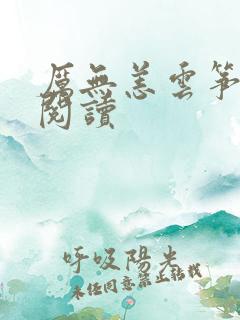 厲無恙雲箏
閱讀
呼吸陽光
未經同意禁止轉載